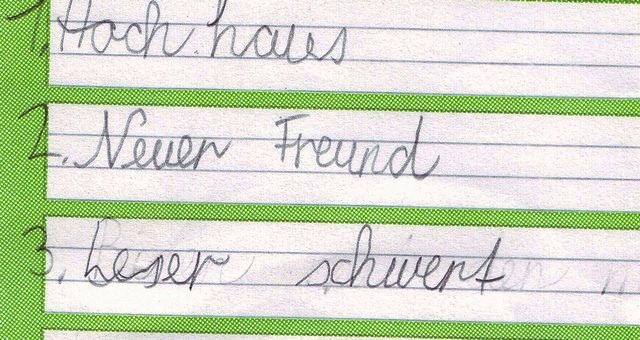 1. Hoch haus
2. Neuer Freund
3. Leser schwert